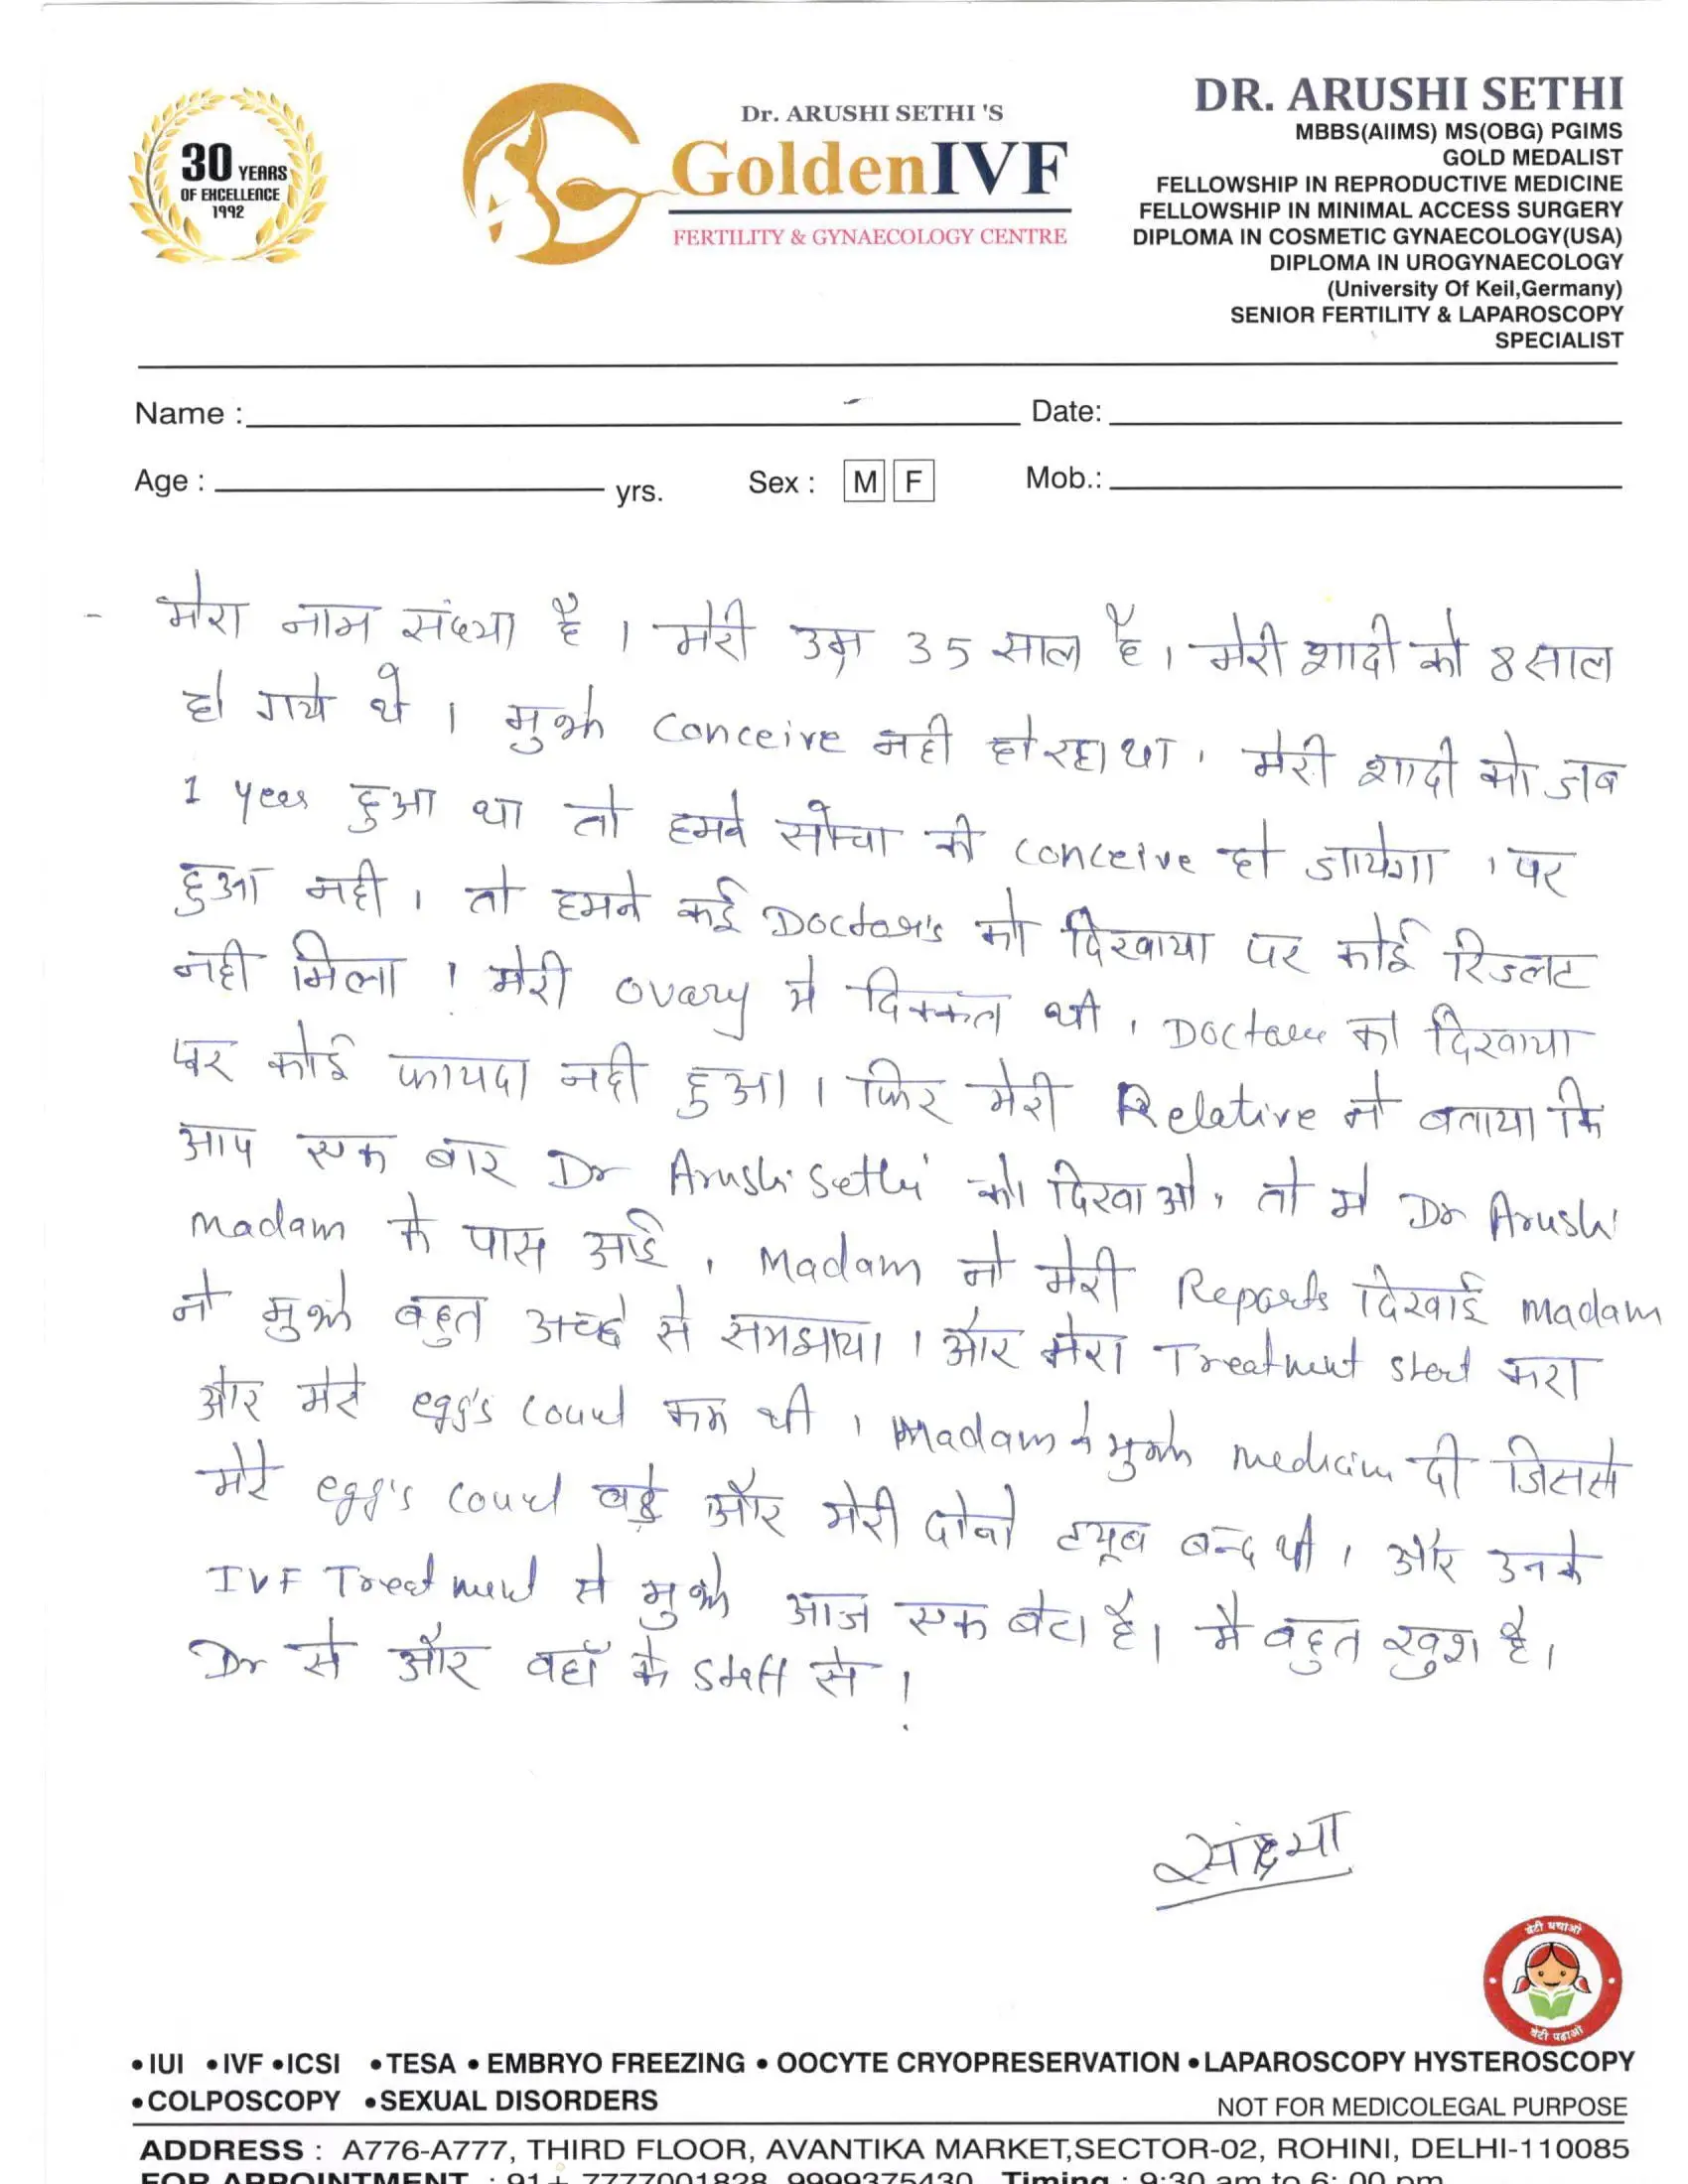 30 YEARS
OF EXCELLENCE
1992
Dr. ARUSHI SETHI 'S
GoldenIVF
FERTILITY & GYNAECOLOGY CENTRE
DR. ARUSHI SETHI
MBBS(AIIMS) MS(OBG) PGIMS
GOLD MEDALIST
FELLOWSHIP IN REPRODUCTIVE MEDICINE
FELLOWSHIP IN MINIMAL ACCESS SURGERY
DIPLOMA IN COSMETIC GYNAECOLOGY(USA)
DIPLOMA IN UROGYNAECOLOGY
(University Of Keil,Germany)
SENIOR FERTILITY & LAPAROSCOPY
SPECIALIST
Name : Date:
Age : yrs. Sex : M F Mob.:
- मेरा नाम संध्या है । मेरी उम्र 35 साल है । मेरी शादी को 8 साल
हो गये थे । मुझे Conceive नही हो रहा था । मेरी शादी को जब
1 year हुआ था तो हमने सोचा की conceive हो जायेगा । पर
हुआ नही । तो हमने कई Doctor's को दिखाया पर कोई रिजल्ट
नही मिला । मेरी ovary मे दिक्कत थी । Doctor को दिखाया
पर कोई फायदा नही हुआ । फिर मेरी Relative ने बताया कि
आप एक बार Dr Arushi Sethi को दिखाओ, तो मे Dr Arushi
Madam के पास आई , Madam ने मेरी Reports दिखाई madam
ने मुझे बहुत अच्छे से समझाया । और मेरा Treatment start करा
और मेरे egg's count कम थी । Madam ने मुझे medicine दी जिससे
मेरे egg's count बढ़े और मेरी दोनो ट्यूब बन्द थी । और उनके
IVF Treatment से मुझे आज एक बेटा है । मै बहुत खुश है ।
Dr से और वहाँ के staff से !
संध्या
बेटी बचाओ
बेटी पढ़ाओ
• IUI • IVF • ICSI • TESA • EMBRYO FREEZING • OOCYTE CRYOPRESERVATION • LAPAROSCOPY HYSTEROSCOPY
• COLPOSCOPY • SEXUAL DISORDERS NOT FOR MEDICOLEGAL PURPOSE
ADDRESS : A776-A777, THIRD FLOOR, AVANTIKA MARKET,SECTOR-02, ROHINI, DELHI-110085
FOR APPOINTMENT : 91+ 7777001828, 9999375430 Timing : 9:30 am to 6: 00 pm